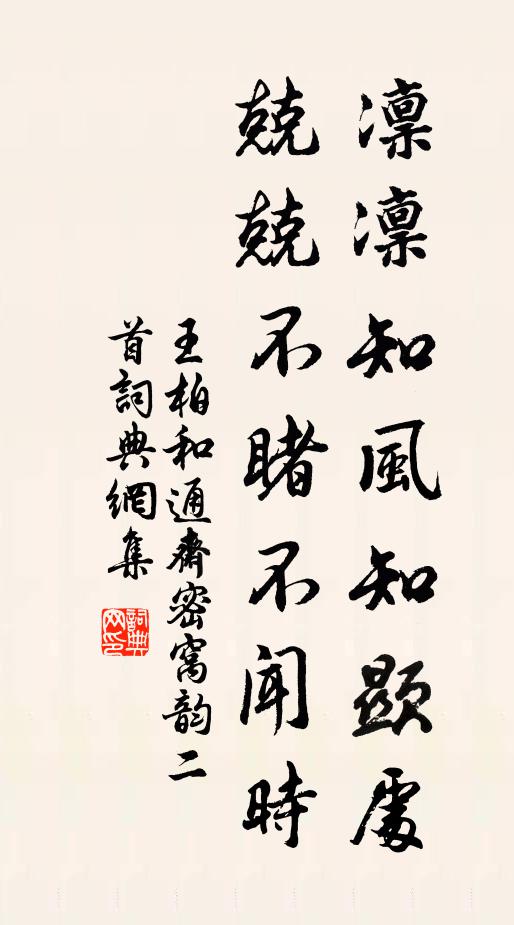 凛凛知風知顯處
兢兢不睹不聞時
王柏和通齋密窩韵二
首詞典網集
詞典
网印